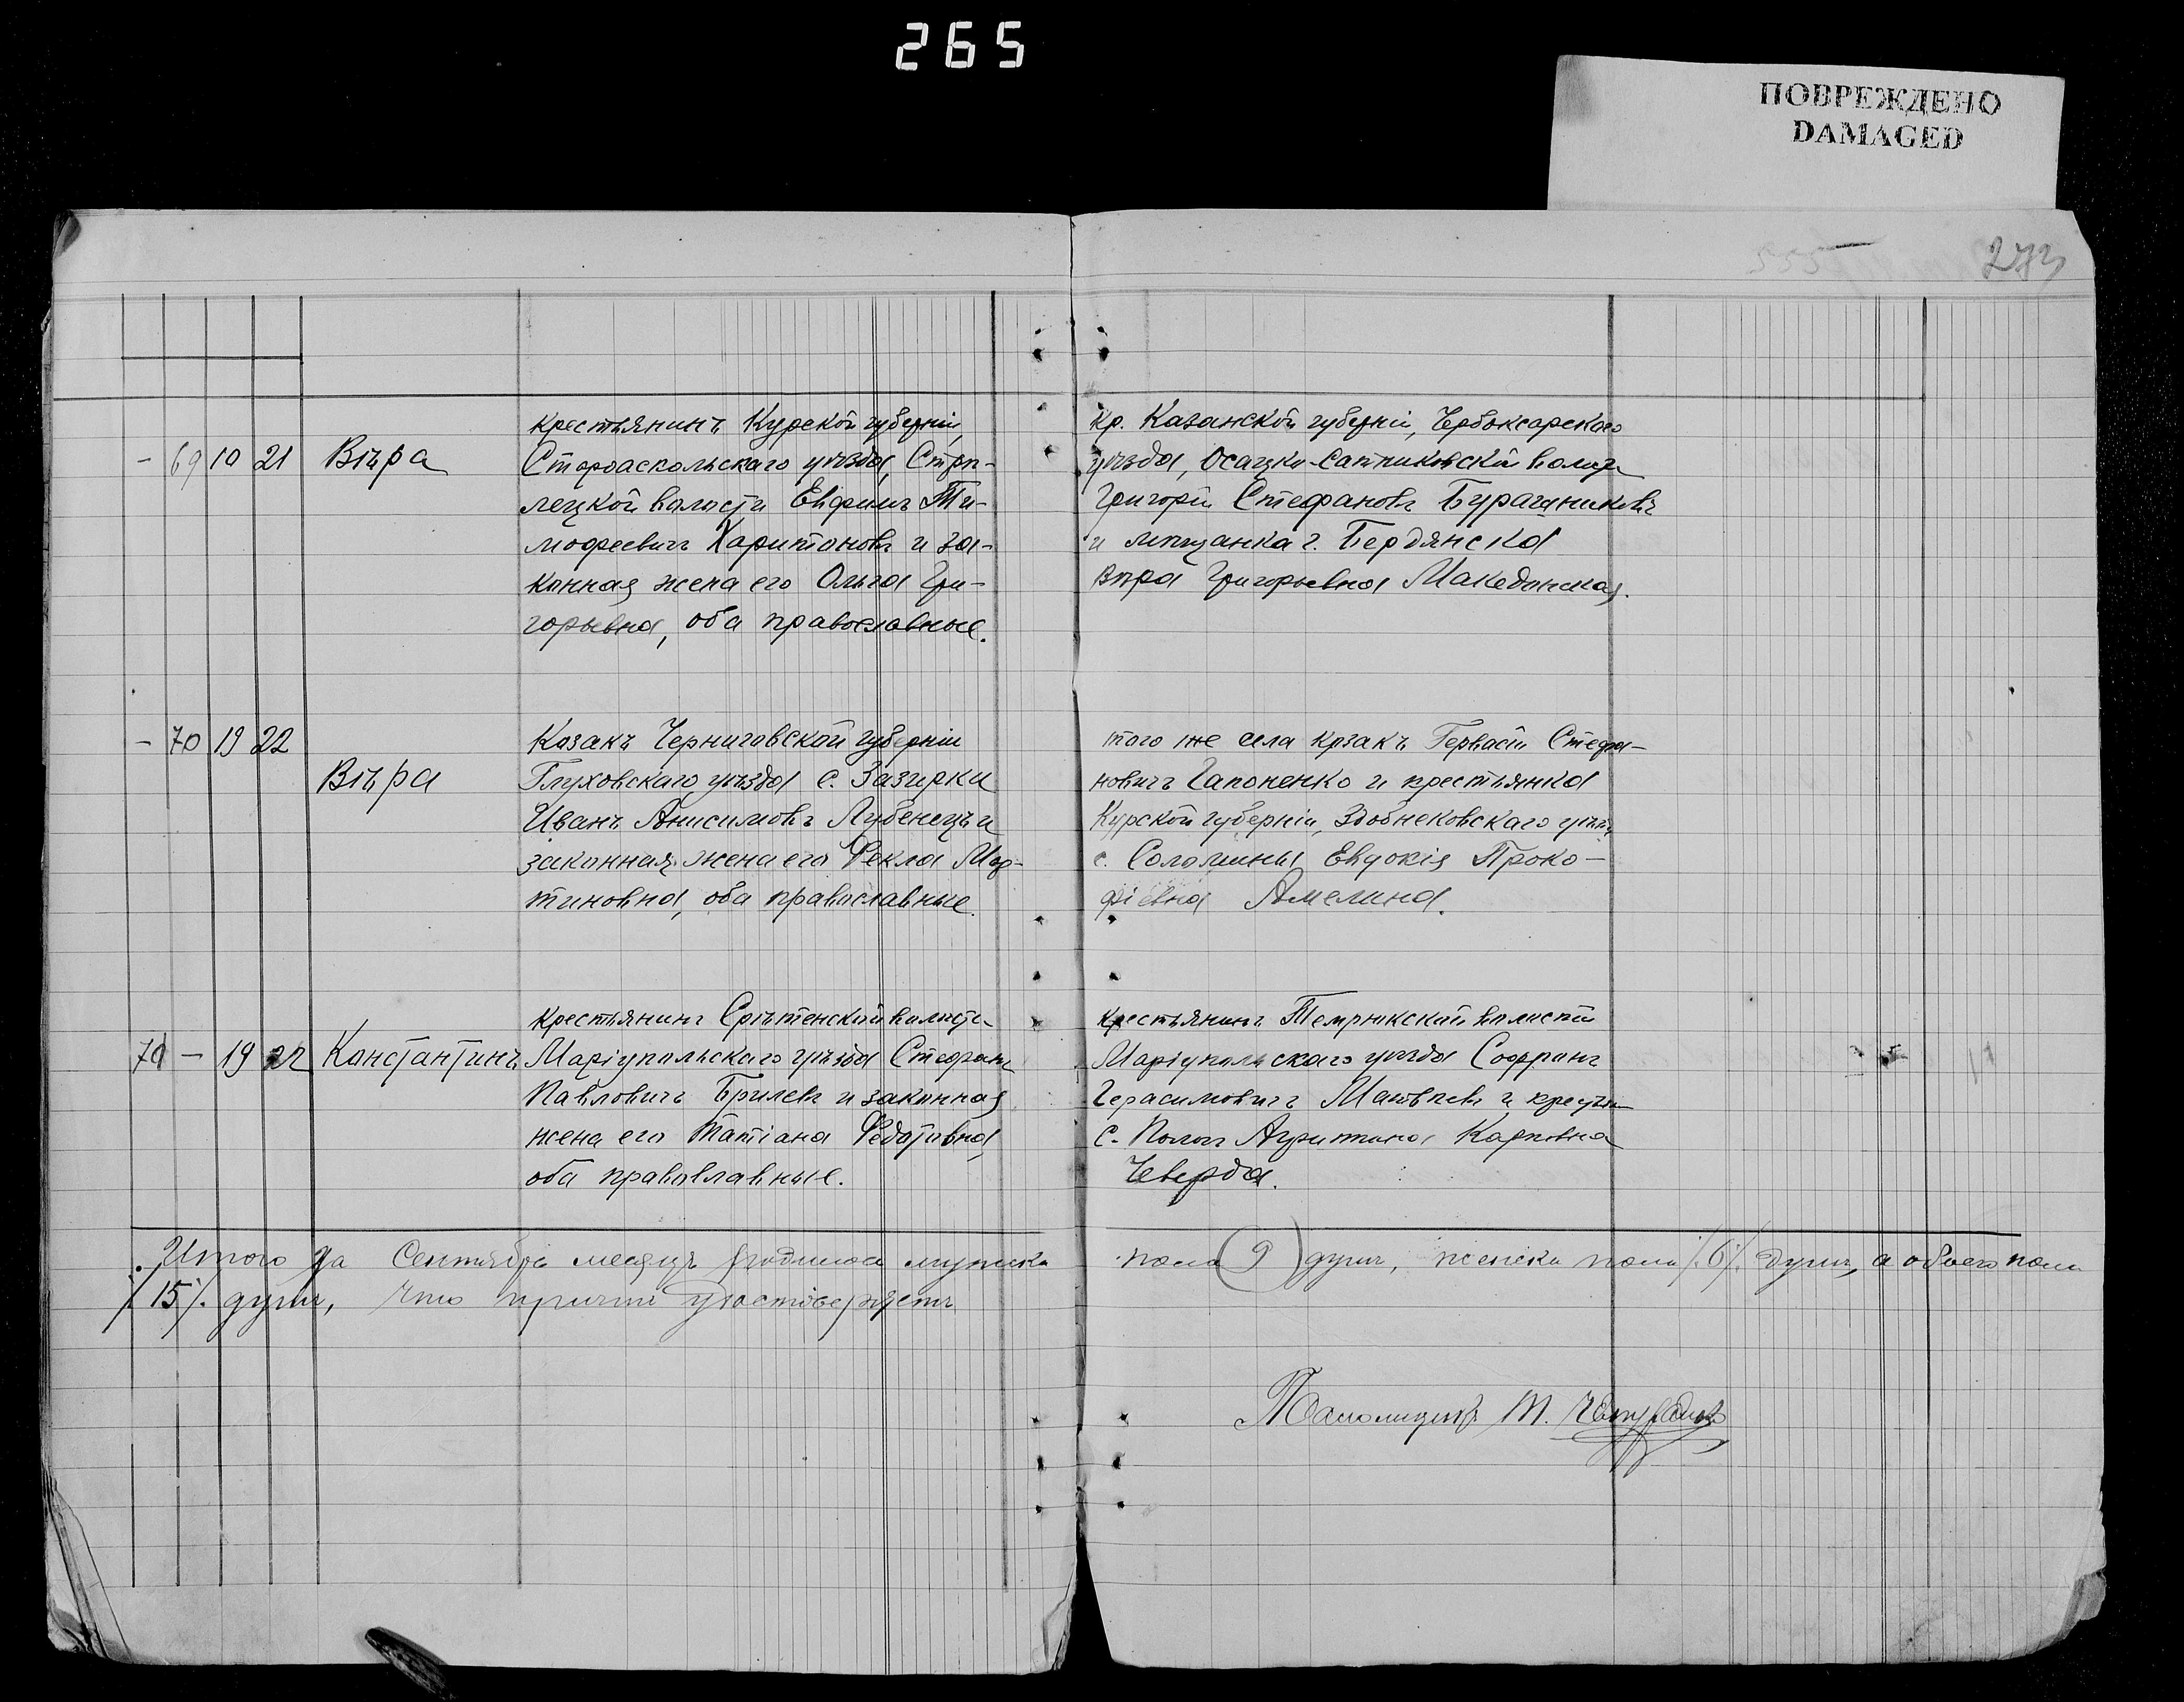 265
ПОВРЕЖДЕНО
DAMAGED
273
555
крестьянинъ Курской губерніи,
- 69 10 21 Вѣра Старооскольскаго уѣзда, Стрѣ-
лецкой волости Евфимъ Ти-
мофеевичъ Харитоновъ и за-
конная жена его Ольга Гри-
горьевна, оба православные.
Кр. Казанской губерніи, Чебоксарскаго
уѣзда, волости
Григорій Стефановъ
и мѣщанка г. Бердянска
Вѣра Григорьевна Македонская.
- 70 19 22 Козакъ Черниговской губерніи
Вѣра Глуховскаго уѣзда с. Зазирки
Иванъ Анисимовъ Лубенецъ и
законная жена его Фекла Мар-
тиновна, оба православные.
того же села козакъ Гервасій Стефа-
новичъ Гапоненко и крестьянка
Курской губерніи, уѣзда
с. Евдокія Проко-
фіевна Амелина.
крестьянинъ Срѣтенской волости
71 - 19 22 Константинъ Маріупольскаго уѣзда Стефанъ
Павловичъ Брилевъ и законная
жена его Татіана Федотовна,
оба православные.
крестьянинъ Темрюкской волости
Маріупольскаго уѣзда
Герасимовичъ Матвѣевъ и крестьян
с. Пологъ Агрипина Карповна
Чеверда.
Итого за Сентябрь месяцъ родилось мужска
пола (9) душъ, женска пола /.6/. душъ, а обоего пола
/.15/. душъ, что причтъ удостоверяетъ
Псаломщикъ М.